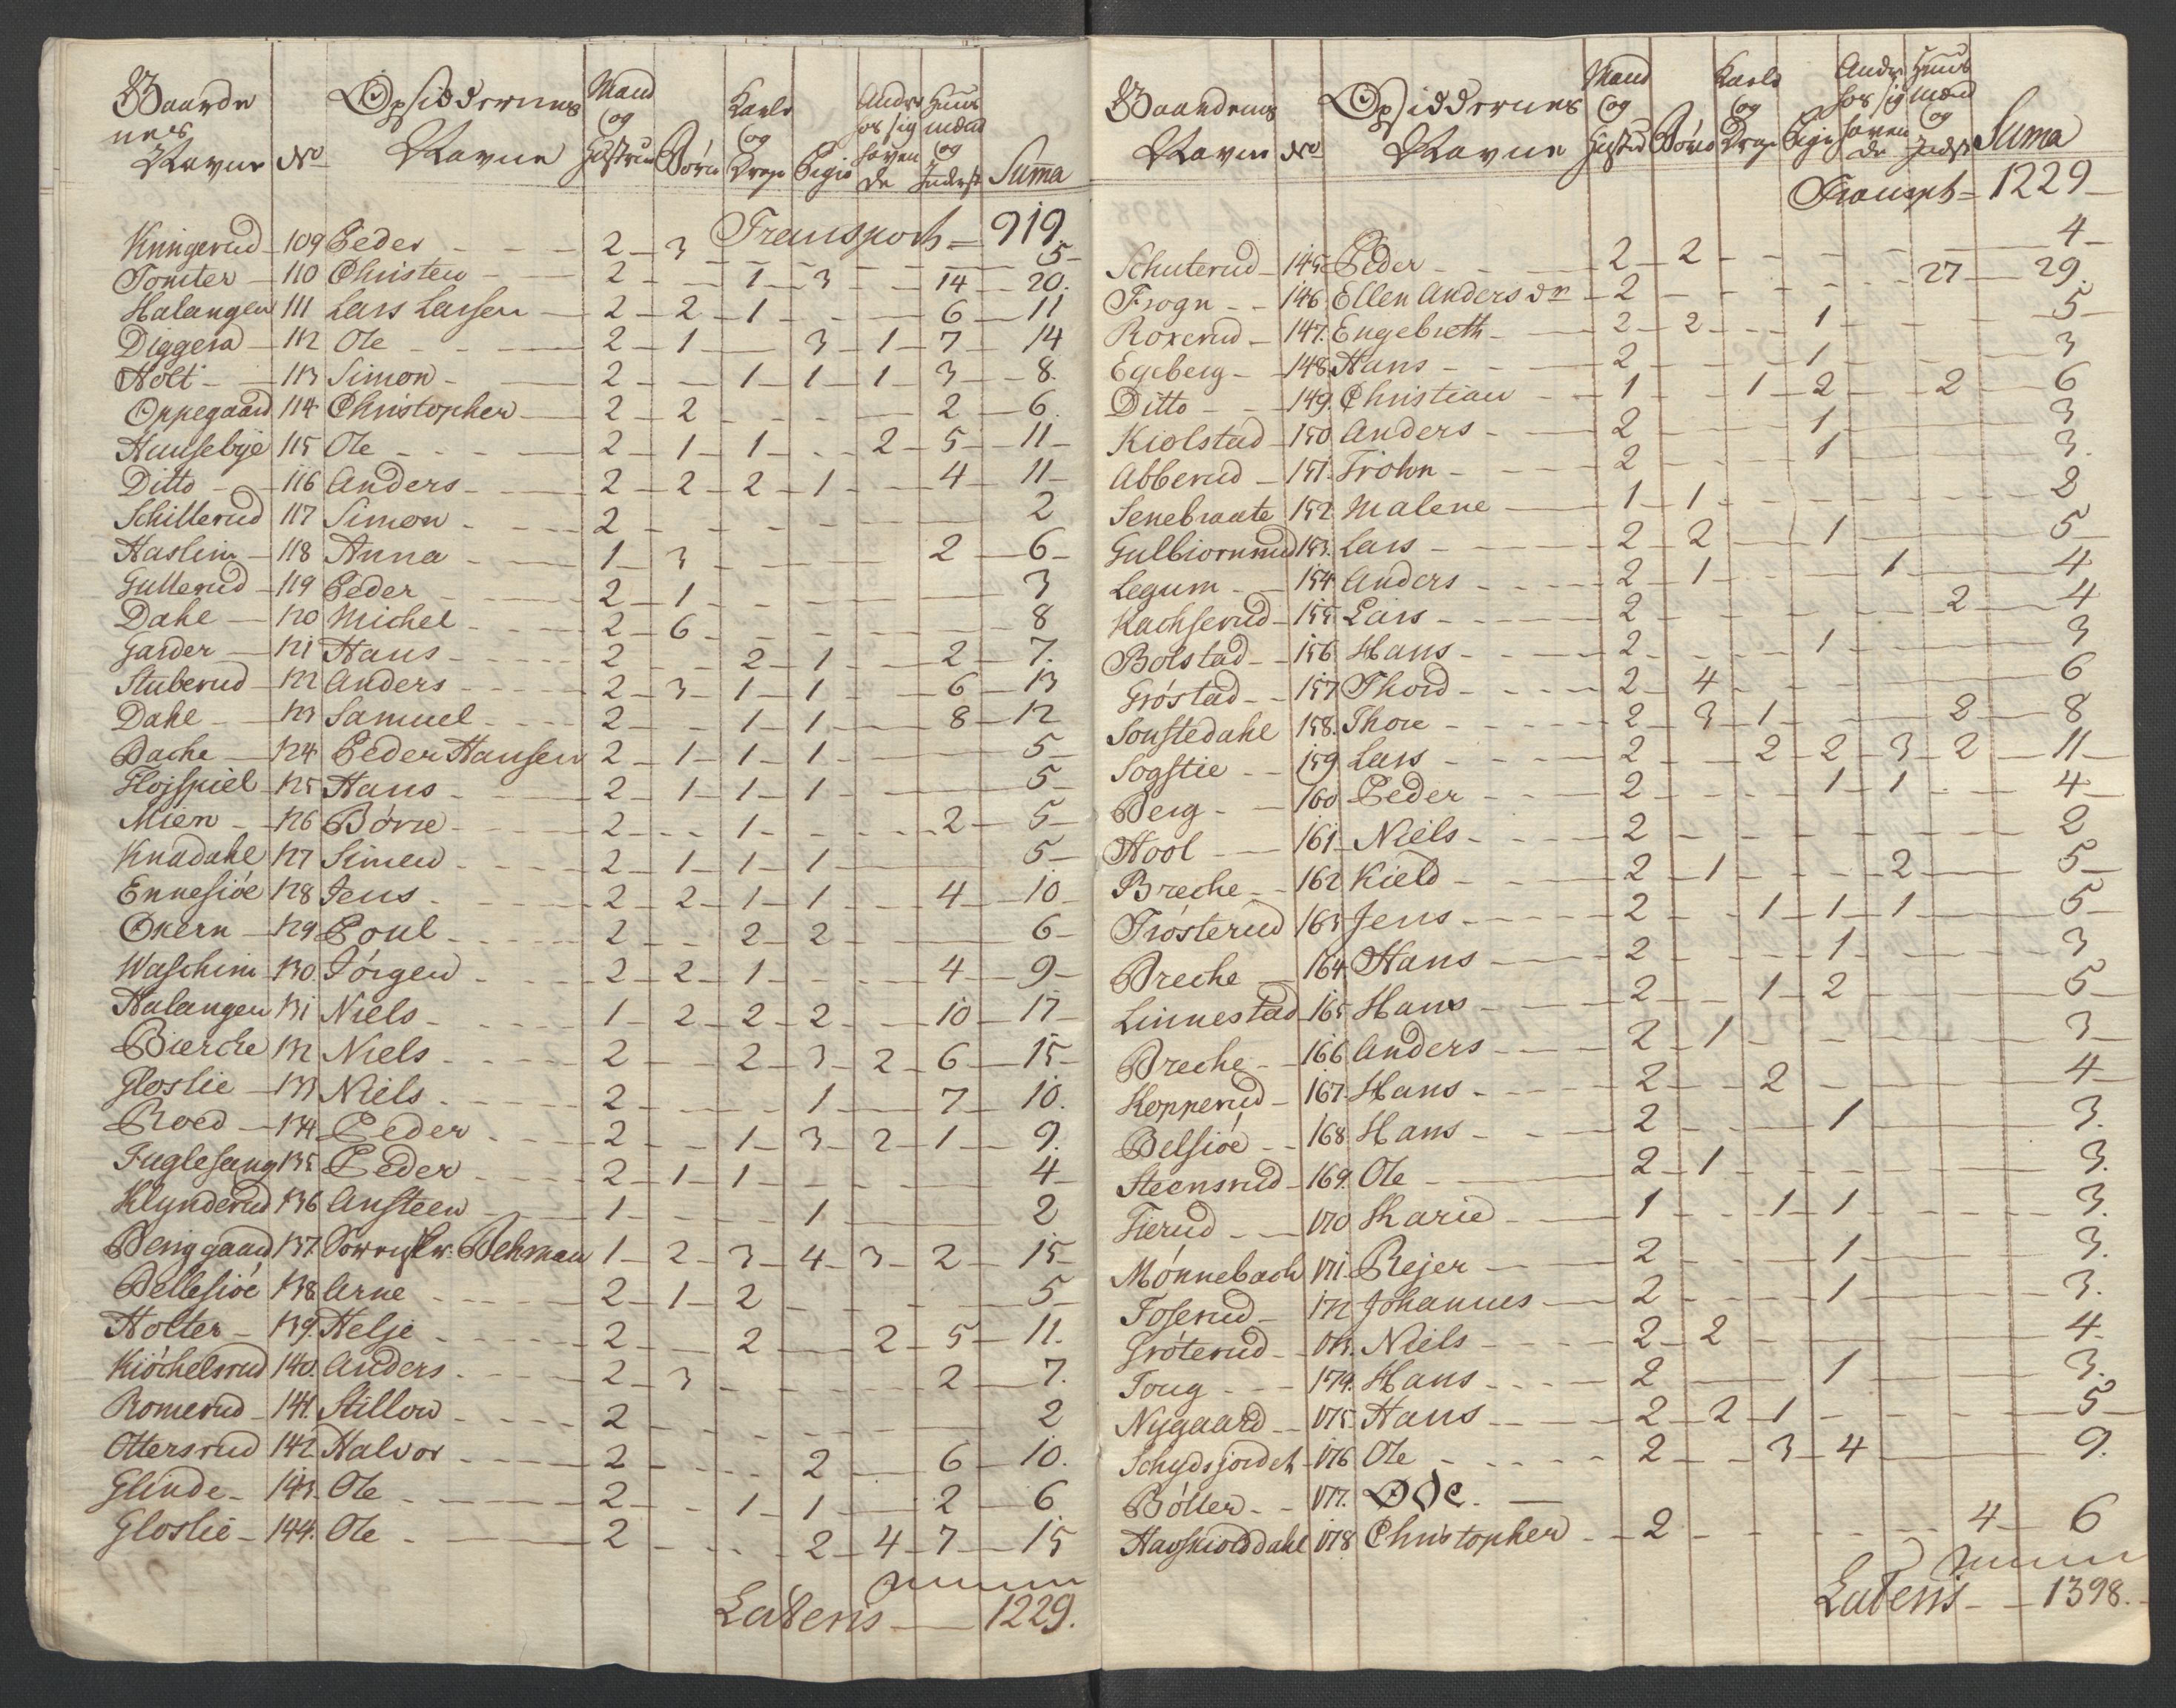 Gaarde
nes
Navne No Opsiddernes Navne Mand og Hustrue Børn Karle og Drenge Piger Andre hos sig havende Huusmænd og Inderster Suma
Transport = 919
Kringerud 109 Peder 2 3 5
Tomter 110 Christen 2 1 3 14 20.
Halangen 111 Lars Larsen 2 2 1 6 11
Diggera 112 Ole 2 1 3 1 7 14
Holt 113 Simon 2 1 1 1 3 8.
Oppegaard 114 Christopher 2 2 2 6.
Huusebye 115 Ole 2 1 1 2 5 11
Ditto 116 Anders 2 2 2 1 4 11
Schillerud 117 Simon 2 2
Haslum 118 Anna 1 3 2 6
Gullerud 119 Peder 2 1 3
Dahl 120 Michel 2 6 8
Garder 121 Hans 2 2 1 2 7.
Stuberud 122 Anders 2 3 1 1 6 13
Dahl 123 Samuel 2 1 1 8 12
Bache 124 Peder Hansen 2 1 1 1 5
Hojspiel 125 Hans 2 1 1 1 5
Mien 126 Börre 2 1 2 5
Knadahl 127 Simen 2 1 1 1 5
Ennesiöe 128 Jens 2 2 1 1 4 10
Okern 129 Poul 2 2 2 6
Waschim 130. Jörgen 2 2 1 4 9
Halangen 131 Niels 1 2 2 2 10 17
Bierche 132 Niels 2 2 3 2 6 15
Gloslie 133 Niels 2 1 7 10.
Roed 134 Peder 2 1 3 2 1 9.
Fuglesang 135 Peder 2 1 1 4
Klynderud 136 Ansteen 1 1 2
Benggaard 137. Behman 1 2 3 4 3 2 15
Bellesiöe 138 Arne 2 1 2 5
Holter 139. Helje 2 2 2 5 11.
Kiöchelsrud 140. Anders 2 3 2 7.
Romerud 141. Stillow 2 2
Ottersrud 142 Halvor 2 2 6 10.
Glinde 143. Ole 2 1 1 2 6
Gloslie 144. Ole 2 2 4 7 15
Lateris 1229.
Gaardenes Navne No Opsiddernes Navne Mand og Hustru Børn Karle og Drenge Pige Andre hos sig havende Huusmænd og Inderst Suma
Transpt = 1229
Schuterud 145. Peder 2 2 4
Frogn 146. Ellen Andersdr 2 27 29.
Roxerud 147. Engebreth 2 2 1 5
Egeberg 148 Hans 2 1 3
Ditto 149. Christian 1 1 2 2 6
Kiolstad 150 Anders 2 1 3
Abberud 151. Trohn 2 1 3.
Senebraate 152. Malene 1 1 2
Gulbiornrud 153. Lars 2 2 1 5
Legum 154 Anders 2 1 1 4
Kachserud 155. Lars 2 2 4
Bolstad 156. Hans 2 1 3
Gröstad 157 Thord 2 4 6
Sonstedahl 158. Thore 2 3 1 2 8
Sogstie 159 Lars 2 2 2 3 2 11
Berg 160 Peder 2 1 1 4
Hool 161. Niels 2 2
Breche 162 Kield 2 1 2 5
Trösterud 163 Jens 2 1 1 1 5
Breche 164. Hans 2 1 3
Linnestad 165 Hans 2 1 2 5
Breche 166 Anders 2 1 3
Kopperud 167. Hans 2 2 4
Belsiöe 168. Hans 2 1 3.
Steensrud 169. Ole 2 1 3.
Fierud 170 Karie 1 1 1 3.
Mönnebach 171. Rejer 2 1 3.
Foserud 172 Johannes 2 1 3.
Gröterud 173. Niels 2 2 4
Toug 174. Hans 2 1 3.
Nygaard 175. Hans 2 2 1 5
Schydsjordet 176 Ole 2 3 4 9.
Böller 177. Øde.
Havskiolddahl 178 Christopher 2 4 6
Lateris 1398.